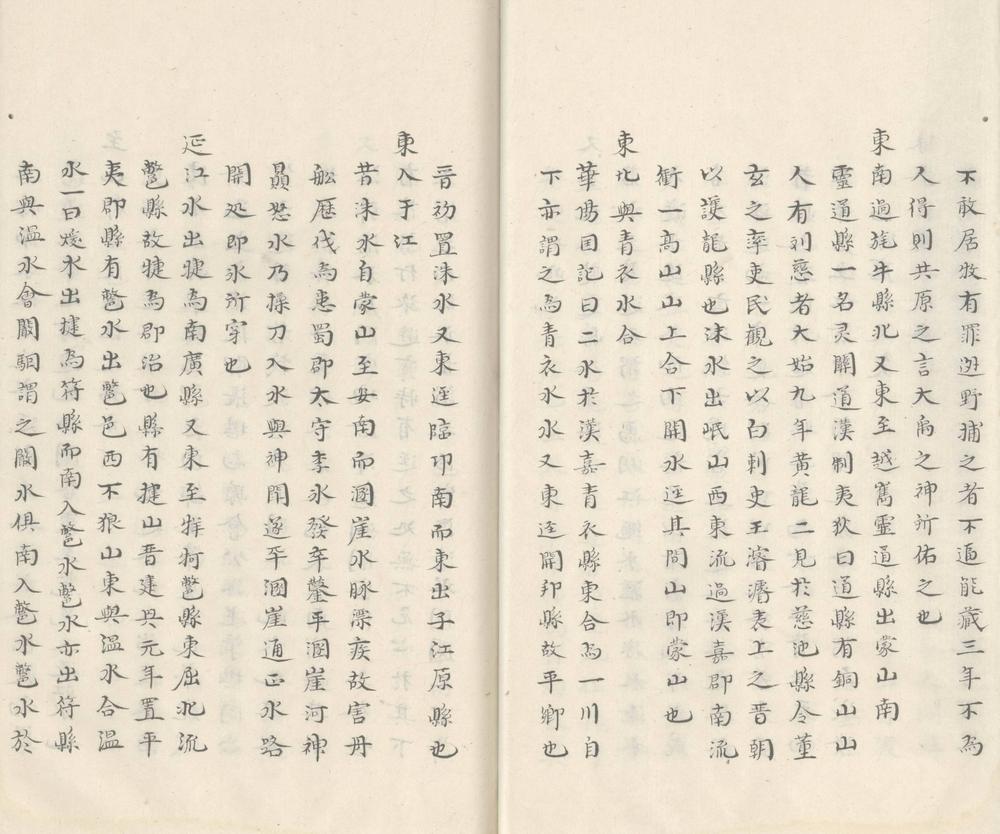 不敢居牧有罪迯野捕之者不逼能藏三年不為
人得則共原之言大禹之神所佑之也
東南過旄牛縣北又東至越嶲靈道縣出蒙山南
靈道縣一名灵關道漢制夷狄曰道縣有銅山山
人有利慈者大始九年黄龍二見於慈池縣令董
玄之率吏民觀之以白刺史王濬濬表上之晋朝
以護龍縣也沫水出岷山西東流過漢嘉郡南流
衝一高山山上合下開水逕其間山即蒙山也
東北與青衣水合
華陽国記曰二水於漢嘉青衣縣東合為一川自
下亦謂之為青衣水水又東逕開邦縣故平鄉也
晋初置沫水又東逕臨卭南而東出于江原縣也
東入于江
昔沫水自蒙山至安南而溷崖水脉漂疾故害舟
舩歷代為患蜀郡太守李氷發卒鑿平溷崖河神
贔怒氷乃操刀入水與神鬪遂平溷崖通正水路
開処即氷所穿也
延江水出犍為南廣縣又東至牂柯鷩縣東屈北流
鷩縣故犍為郡治也縣有揵山晋建興元年置平
夷郡縣有鷩水出鷩邑西不狼山東與溫水合溫
水一曰煖水出揵為符縣而南入鷩水鷩水亦出符縣
南與溫水會闞駰謂之闞水俱南入鷩水鷩水於